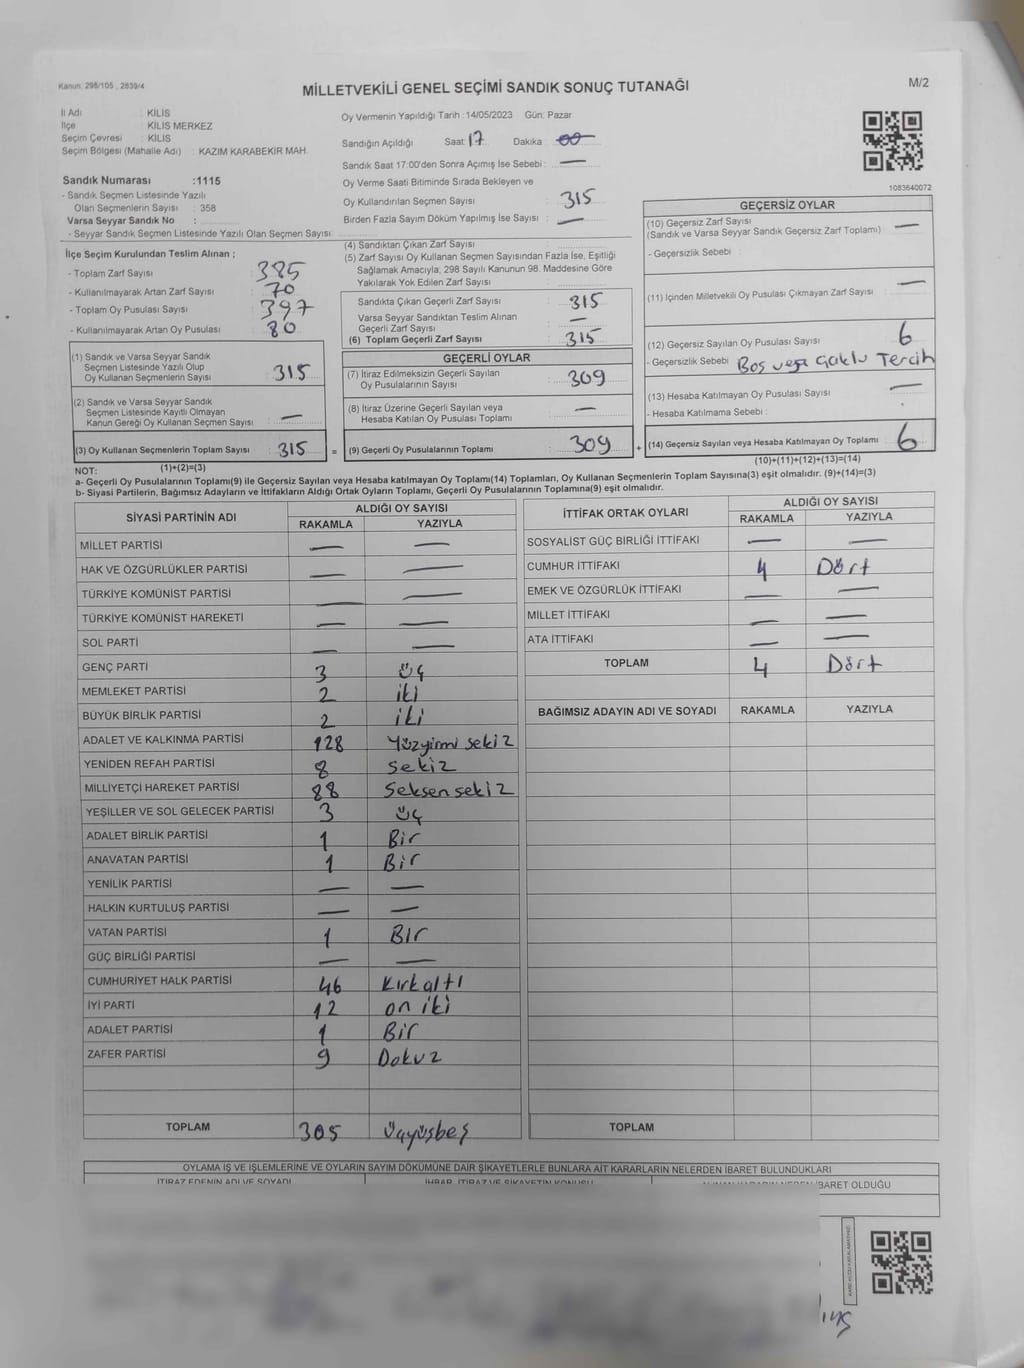 Kanun: 298/105 , 2839/4
MİLLETVEKİLİ GENEL SEÇİMİ SANDIK SONUÇ TUTANAĞI
M/2
İl Adı : KİLİS
İlçe : KİLİS MERKEZ
Seçim Çevresi : KİLİS
Seçim Bölgesi (Mahalle Adı) : KAZIM KARABEKİR MAH.
Sandık Numarası :1115
- Sandık Seçmen Listesinde Yazılı
Olan Seçmenlerin Sayısı : 358
Varsa Seyyar Sandık No :
- Seyyar Sandık Seçmen Listesinde Yazılı Olan Seçmen Sayısı :
Oy Vermenin Yapıldığı Tarih :14/05/2023 Gün: Pazar
Sandığın Açıldığı Saat: 17 Dakika: 00
Sandık Saat 17:00'den Sonra Açımış İse Sebebi : —
Oy Verme Saati Bitiminde Sırada Bekleyen ve
Oy Kullandırılan Seçmen Sayısı : 315
Birden Fazla Sayım Döküm Yapılmış İse Sayısı : —
1083640072
İlçe Seçim Kurulundan Teslim Alınan ;
- Toplam Zarf Sayısı : 385
- Kullanılmayarak Artan Zarf Sayısı : 70
- Toplam Oy Pusulası Sayısı : 397
- Kullanılmayarak Artan Oy Pusulası : 80
(1) Sandık ve Varsa Seyyar Sandık
Seçmen Listesinde Yazılı Olup
Oy Kullanan Seçmenlerin Sayısı : 315
(2) Sandık ve Varsa Seyyar Sandık
Seçmen Listesinde Kayıtlı Olmayan
Kanun Gereği Oy Kullanan Seçmen Sayısı : —
(3) Oy Kullanan Seçmenlerin Toplam Sayısı : 315
(1)+(2)=(3)
(4) Sandıktan Çıkan Zarf Sayısı :
(5) Zarf Sayısı Oy Kullanan Seçmen Sayısından Fazla İse, Eşitliği
Sağlamak Amacıyla; 298 Sayılı Kanunun 98. Maddesine Göre
Yakılarak Yok Edilen Zarf Sayısı :
Sandıkta Çıkan Geçerli Zarf Sayısı : 315
Varsa Seyyar Sandıktan Teslim Alınan
Geçerli Zarf Sayısı : —
(6) Toplam Geçerli Zarf Sayısı : 315
GEÇERLİ OYLAR
(7) İtiraz Edilmeksizin Geçerli Sayılan
Oy Pusulalarının Sayısı : 309
(8) İtiraz Üzerine Geçerli Sayılan veya
Hesaba Katılan Oy Pusulası Toplamı : —
= (9) Geçerli Oy Pusulalarının Toplamı : 309
GEÇERSİZ OYLAR
(10) Geçersiz Zarf Sayısı : —
(Sandık ve Varsa Seyyar Sandık Geçersiz Zarf Toplamı)
- Geçersizlik Sebebi :
(11) İçinden Milletvekili Oy Pusulası Çıkmayan Zarf Sayısı : —
(12) Geçersiz Sayılan Oy Pusulası Sayısı : 6
- Geçersizlik Sebebi : Boş veya Çoklu Tercih
(13) Hesaba Katılmayan Oy Pusulası Sayısı : —
- Hesaba Katılmama Sebebi :
+ (14) Geçersiz Sayılan veya Hesaba Katılmayan Oy Toplamı : 6
(10)+(11)+(12)+(13)=(14)
NOT:
a- Geçerli Oy Pusulalarının Toplamı(9) ile Geçersiz Sayılan veya Hesaba katılmayan Oy Toplamı(14) Toplamları, Oy Kullanan Seçmenlerin Toplam Sayısına(3) eşit olmalıdır. (9)+(14)=(3)
b- Siyasi Partilerin, Bağımsız Adayların ve İttifakların Aldığı Ortak Oyların Toplamı, Geçerli Oy Pusulalarının Toplamına(9) eşit olmalıdır.
SİYASİ PARTİNİN ADI ALDIĞI OY SAYISI
RAKAMLA YAZIYLA
MİLLET PARTİSİ — —
HAK VE ÖZGÜRLÜKLER PARTİSİ — —
TÜRKİYE KOMÜNİST PARTİSİ — —
TÜRKİYE KOMÜNİST HAREKETİ — —
SOL PARTİ — —
GENÇ PARTİ 3 üç
MEMLEKET PARTİSİ 2 iki
BÜYÜK BİRLİK PARTİSİ 2 iki
ADALET VE KALKINMA PARTİSİ 128 Yüzyirmi sekiz
YENİDEN REFAH PARTİSİ 8 sekiz
MİLLİYETÇİ HAREKET PARTİSİ 88 Seksen sekiz
YEŞİLLER VE SOL GELECEK PARTİSİ 3 üç
ADALET BİRLİK PARTİSİ 1 Bir
ANAVATAN PARTİSİ 1 Bir
YENİLİK PARTİSİ — —
HALKIN KURTULUŞ PARTİSİ — —
VATAN PARTİSİ 1 Bir
GÜÇ BİRLİĞİ PARTİSİ — —
CUMHURİYET HALK PARTİSİ 46 Kırkaltı
İYİ PARTİ 12 on iki
ADALET PARTİSİ 1 Bir
ZAFER PARTİSİ 9 Dokuz
TOPLAM 305 üçyüsbeş
İTTİFAK ORTAK OYLARI ALDIĞI OY SAYISI
RAKAMLA YAZIYLA
SOSYALİST GÜÇ BİRLİĞİ İTTİFAKI — —
CUMHUR İTTİFAKI 4 Dört
EMEK VE ÖZGÜRLÜK İTTİFAKI — —
MİLLET İTTİFAKI — —
ATA İTTİFAKI — —
TOPLAM 4 Dört
BAĞIMSIZ ADAYIN ADI VE SOYADI RAKAMLA YAZIYLA
TOPLAM
OYLAMA İŞ VE İŞLEMLERİNE VE OYLARIN SAYIM DÖKÜMÜNE DAİR ŞİKAYETLERLE BUNLARA AİT KARARLARIN NELERDEN İBARET BULUNDUKLARI
İTİRAZ EDENİN ADI VE SOYADI İHBAR, İTİRAZ VE ŞİKAYETİN KONUSU İBARET OLDUĞU